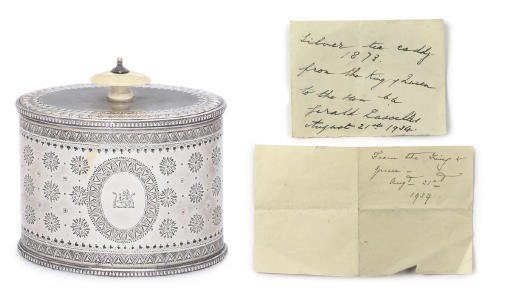 Silver tea caddy
1873.
from the King & Queen
to the son
Gerald Lascelles
August 21st 1924.
From the King &
Queen –
Augt 21st
1924